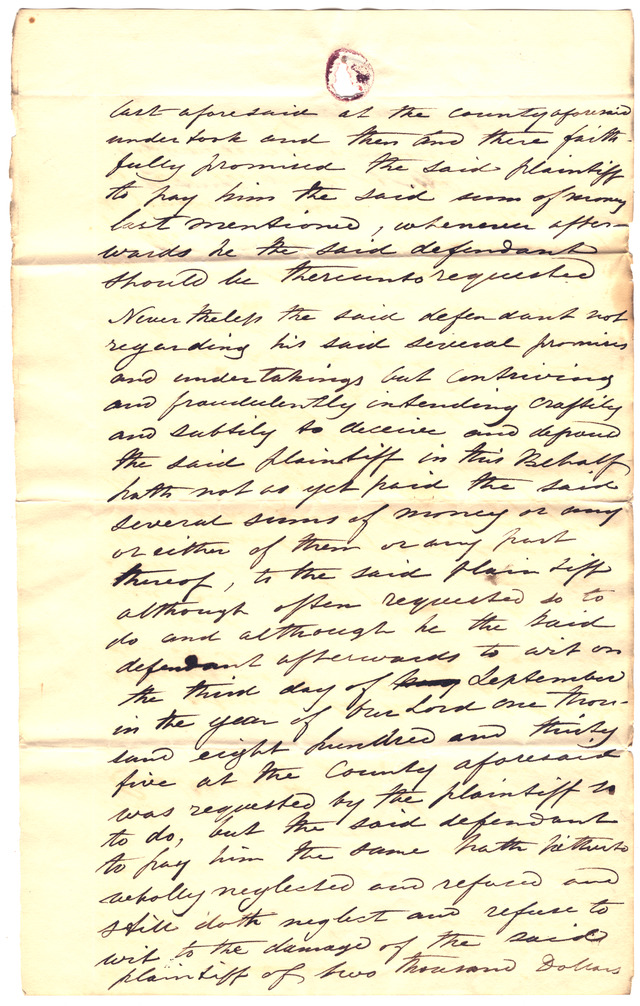 last aforesaid at the county aforesaid
undertook and then and there faith-
fully promised the said plaintiff
to pay him the said sum of money
last mentioned, whenever after-
wards he the said defendant
should be thereunto requested
Nevertheless the said defendant not
regarding his said several promises
and undertakings but contriving
and fraudulently intending craftily
and subtily to deceive and defraud
the said plaintiff in this Behalf
hath not as yet paid the said
several sums of money or any
or either of them or any part
thereof, to the said plaintiff
although often requested so to
do and although he the said
defendant afterwards to wit on
the third day of September
in the year of our Lord one thou-
sand eight hundred and thirty
five at the County aforesaid
was requested by the plaintiff so
to do, but the said defendant
to pay him the same hath hitherto
wholly neglected and refused and
still doth neglect and refuse to
wit to the damage of the said
plaintiff of two thousand Dollars